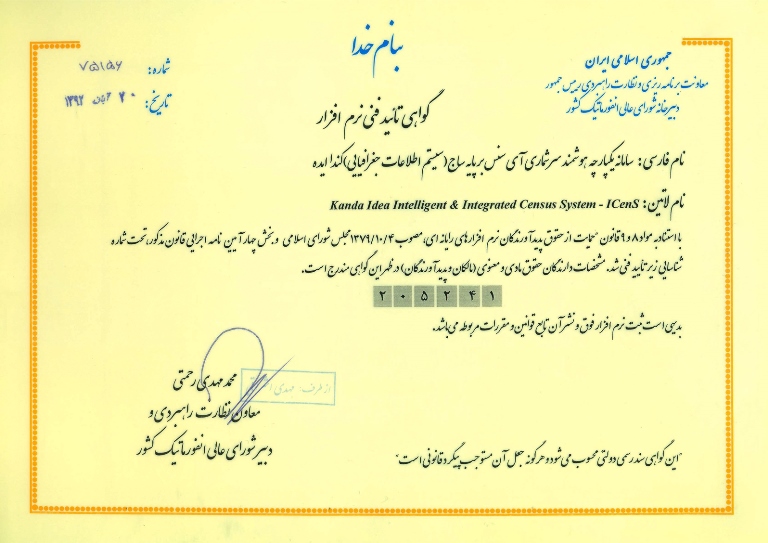 بنام خدا
جمهوری اسلامی ایران
معاونت برنامه ریزی و نظارت راهبردی رییس جمهور
دبیرخانه شورای عالی انفورماتیک کشور
شماره: ۷۵۱۵۶
تاریخ: ۲۰ آبان ۱۳۹۲
گواهی تائید فنی نرم افزار
نام فارسی: سامانه یکپارچه هوشمند سرشماری آی سنس بر پایه ساج (سیستم اطلاعات جغرافیایی) کندا ایده
نام لاتین: Kanda Idea Intelligent & Integrated Census System - ICenS
با استناد به مواد ۸ و ۹ قانون حمایت از حقوق پدیدآورندگان نرم افزارهای رایانه ای، مصوب ۱۳۷۹/۱۰/۴ مجلس شورای اسلامی و بخش چهار آیین نامه اجرایی قانون مذکور، تحت شماره
شناسایی زیر تأیید فنی شد. مشخصات دارندگان حقوق مادی و معنوی (مالکان و پدیدآورندگان) در ظهر این گواهی مندرج است.
۲۰۵۲۴۱
بدیهی است ثبت نرم افزار فوق و نشر آن تابع قوانین و مقررات مربوطه می باشد.
از طرف: مهدی
محمد مهدی رحمتی
معاون نظارت راهبردی و
دبیر شورای عالی انفورماتیک کشور
"این گواهی سند رسمی دولتی محسوب می شود و هرگونه جعل آن مستوجب پیگرد قانونی است"